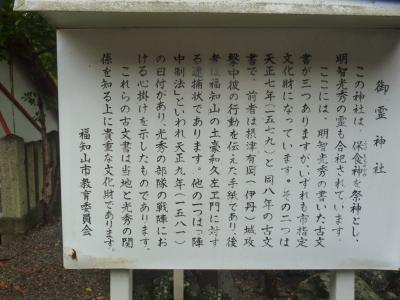 御霊神社
この神社は、保食神を祭神とし、
明智光秀の霊も合祀されています。
ここには、明智光秀の書いた古文
書が三つありますが、いずれも市指定
文化財になっています。その二つは
天正七年（一五七九）と同八年の古文
書で、前者は摂津有岡（伊丹）城攻
撃中彼の行動を伝えた手紙であり、後
者は福知山の土豪和久左エ門に対す
る逮捕状であります。他の一つは「陣
中制法」といわれ天正九年（一五八一）
の日付があり、光秀の部隊の戦陣にお
ける心掛けを示したものであります。
これらの古文書は当地と光秀の関
係を知る上に貴重な文化財であります。
福知山市教育委員会